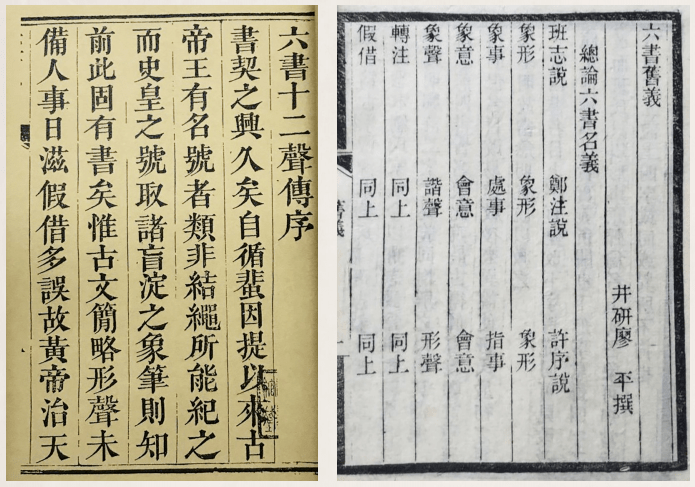 六書十二聲傳序
書契之興久矣自循蜚因提以來古
帝王有名號者類非結繩所能紀之
而史皇之號取諸盲淀之象筆則知
前此固有書矣惟古文簡略形聲未
備人事日滋假借多誤故黃帝治天
六書舊義
井研廖 平撰
總論六書名義
班志說 鄭注說 許序說
象形 象形 象形
象事 處事 指事
象意 會意 會意
象聲 諧聲 形聲
轉注 同上 同上
假借 同上 同上
舊義